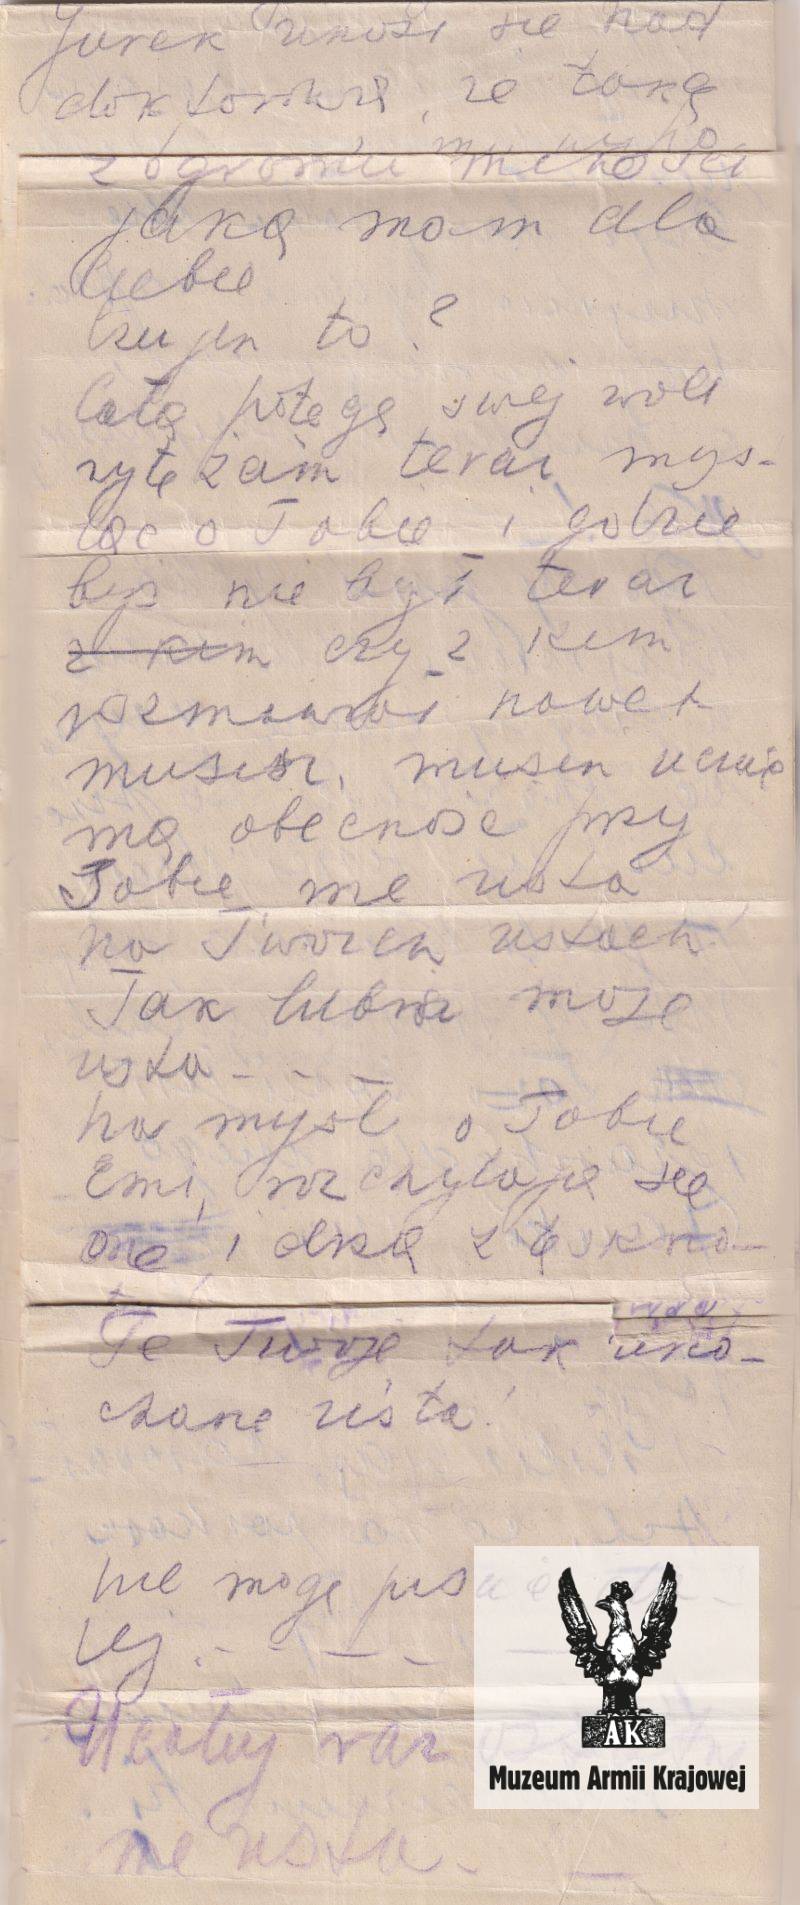 Jurek unosi się nad
doktorówną, że taką
z ogromu miłości
jaką mam dla
Ciebie
Czujesz to?
Całą potęgę swej woli
wytężam teraz myś-
ląc o Tobie i gdzie
byś nie był teraz
z kim czy z kim
rozmawiał nawet
musisz, musisz uczuć
mą obecność przy
Tobie, me usta
na Twoich ustach!
Tak lubisz moje
usta - - -
na myśl o Tobie
Emi, rozchylają się
one i drżą z tęskno-
ty
Te Twoje tak uko-
chane usta!
nie mogę pisać da-
lej. - - -
Ucałuj raz
me usta. -
AK
Muzeum Armii Krajowej